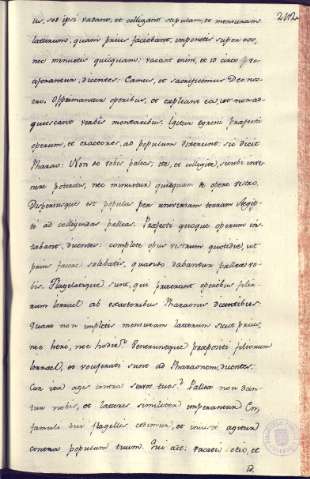 202
us, sed ipsi vadant, et colligant stipulam, et mensuram
laterum, quam prius faciebant, imponetis super eos,
nec minuetis quidquam: vacant enim, et id circo
dicentes: Eamus, et sacrificemus Deo nos
tro. Opprimantur operibus, et expleant ea, ut non ac
quiescant verbis mendacibus. Igitur egressi præfecti
operum, et exactores, ad populum dixerunt: sic dicit
Pharao: Non do vobis paleas: ite, et colligite, sicubi inve
nire poteritis, nec minuetur quidquam de opere vestro.
Dispersusque est populus per universam terram Ægip
ti ad colligendas paleas. Præfecti quoque operum ins
tabant, dicentes: complete opus vestrum quotidie, ut
prius facere solebatis, quando dabantur paleæ vo
bis. Flagelatique sunt, qui præerant operibus filio
rum Israel ab exactoribus Pharaonis dicentibus:
Quare non impletis mensuram laterum sicut prius,
nec heri, nec hodie? Veneruntque præpositi filiorum
Israel, et vociferati sunt ad Pharaonem, dicentes:
Cur ita agis contra servos tuos? Paleæ non dan
tur nobis, et lateres similiter imperantur. En
famuli tui flagellis cædimur, et injuste agitur
contra populum tuum. Qui ait: vacatis otio, et